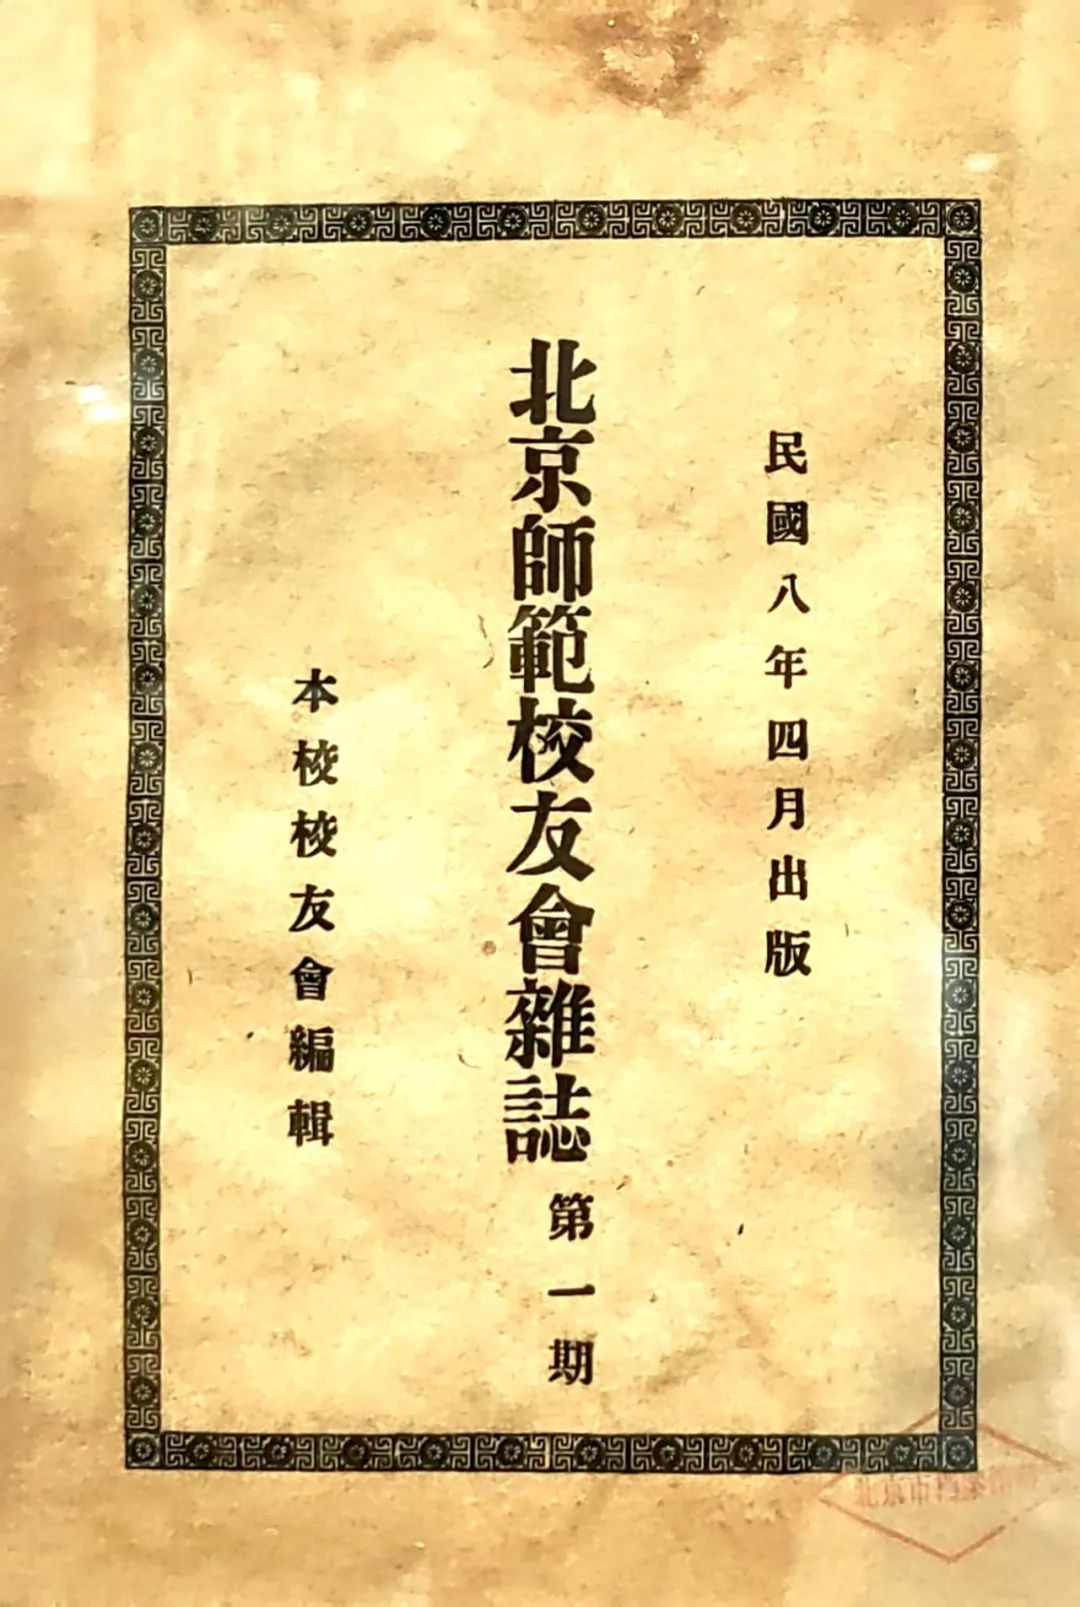 民國八年四月出版
北京師範校友會雜誌 第一期
本校校友會編輯